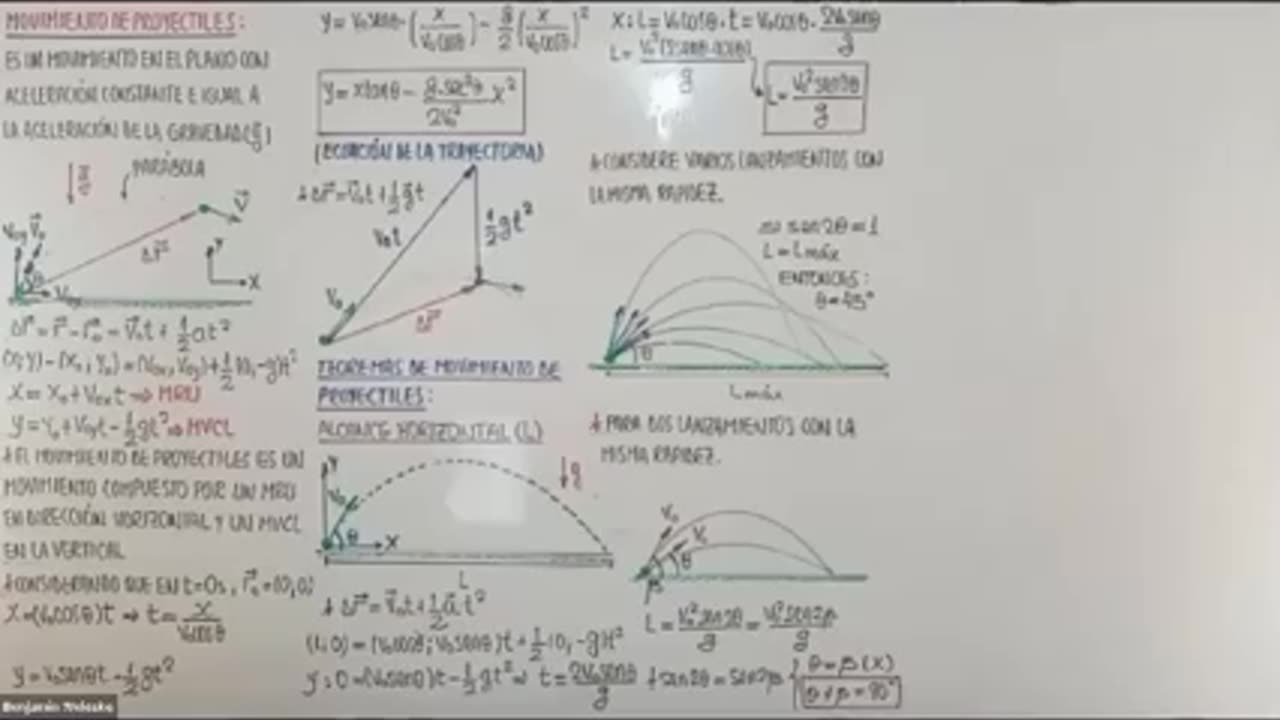 MOVIMIENTO DE PROYECTILES:
ES UN MOVIMIENTO EN EL PLANO CON
ACELERACIÓN CONSTANTE E IGUAL A
LA ACELERACIÓN DE LA GRAVEDAD (g⃗)
g⃗
PARÁBOLA
V⃗
V₀y V⃗₀
Δr⃗
θ
Y
X
Δr⃗ = r⃗ - r⃗₀ = V⃗₀t + 1/2 at²
(x; y) - (x₀; y₀) = (V₀x, V₀y)t + 1/2 (0, -g)t²
X = X₀ + V₀x t ⇒ MRU
y = y₀ + V₀y t - 1/2 gt² ⇒ MVCL
* EL MOVIMIENTO DE PROYECTILES ES UN
MOVIMIENTO COMPUESTO POR UN MRU
EN DIRECCIÓN HORIZONTAL Y UN MVCL
EN LA VERTICAL
* CONSIDERANDO QUE EN t=0s, r⃗₀=(0,0)
X = (V₀cosθ)t ⇒ t = x/V₀cosθ
y = V₀senθt - 1/2 gt²
y = V₀senθ·(x/V₀cosθ) - g/2 (x/V₀cosθ)²
y = xtanθ - g·sec²θ/2V₀² x²
(ECUACIÓN DE LA TRAYECTORIA)
* Δr⃗ = V⃗₀t + 1/2 g⃗t
V₀t
1/2 gt²
V₀
Δr⃗
TEOREMAS DE MOVIMIENTO DE
PROYECTILES:
ALCANCE HORIZONTAL (L)
Y
V₀
θ
X
g⃗
L
* Δr⃗ = V⃗₀t + 1/2 a⃗t²
(L; 0) = (V₀cosθ; V₀senθ)t + 1/2 (0, -g)t²
y: 0 = (V₀senθ)t - 1/2 gt² ⇒ t = 2V₀senθ/g
X: L = V₀cosθ·t = V₀cosθ·2V₀senθ/g
L = V₀²(2senθ·cosθ)/g
L = V₀²sen2θ/g
* CONSIDERE VARIOS LANZAMIENTOS CON
LA MISMA RAPIDEZ.
⇒ sen2θ = 1
L = Lmáx
ENTONCES:
θ = 45°
θ
Lmáx
* PARA DOS LANZAMIENTOS CON LA
MISMA RAPIDEZ.
V₀
V₀
θ
β
L = V₀²sen2θ/g = V₀²sen2β/g
* sen2θ = sen2β { θ = β (X)
θ + β = 90°